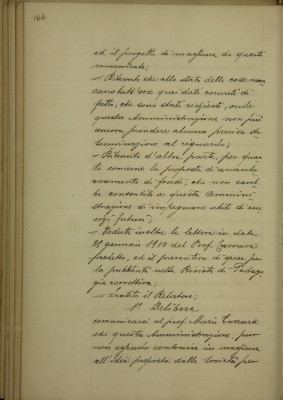 166
ed il progetto di massima da questi
comunicato;
- Ritenuto che allo stato delle cose man-
cano tutt'ora quei dati concreti di
fatto, che sono stati richiesti, onde
questa Amministrazione non può
ancora prendere alcuna precisa de-
terminazione al riguardo;
- Ritenuto d'altra parte, per quan-
to concerne la proposta di
di fondi, che non
consentito a questa Ammini-
strazione di impegnare utili d'eser-
cizi futuri;
- Veduta inoltre la lettera in data
25 gennaio 1910 del Prof. Carrara
predetto, ed il preventivo di spesa per
la pubblicità nella Rivista di Pedago-
gia correttiva;
- Sentito il Relatore;
Delibera
comunicarsi al prof. Mario Carrara
che questa Amministrazione, pur
non essendo contraria in massima
all'idea proposta dalla Società per